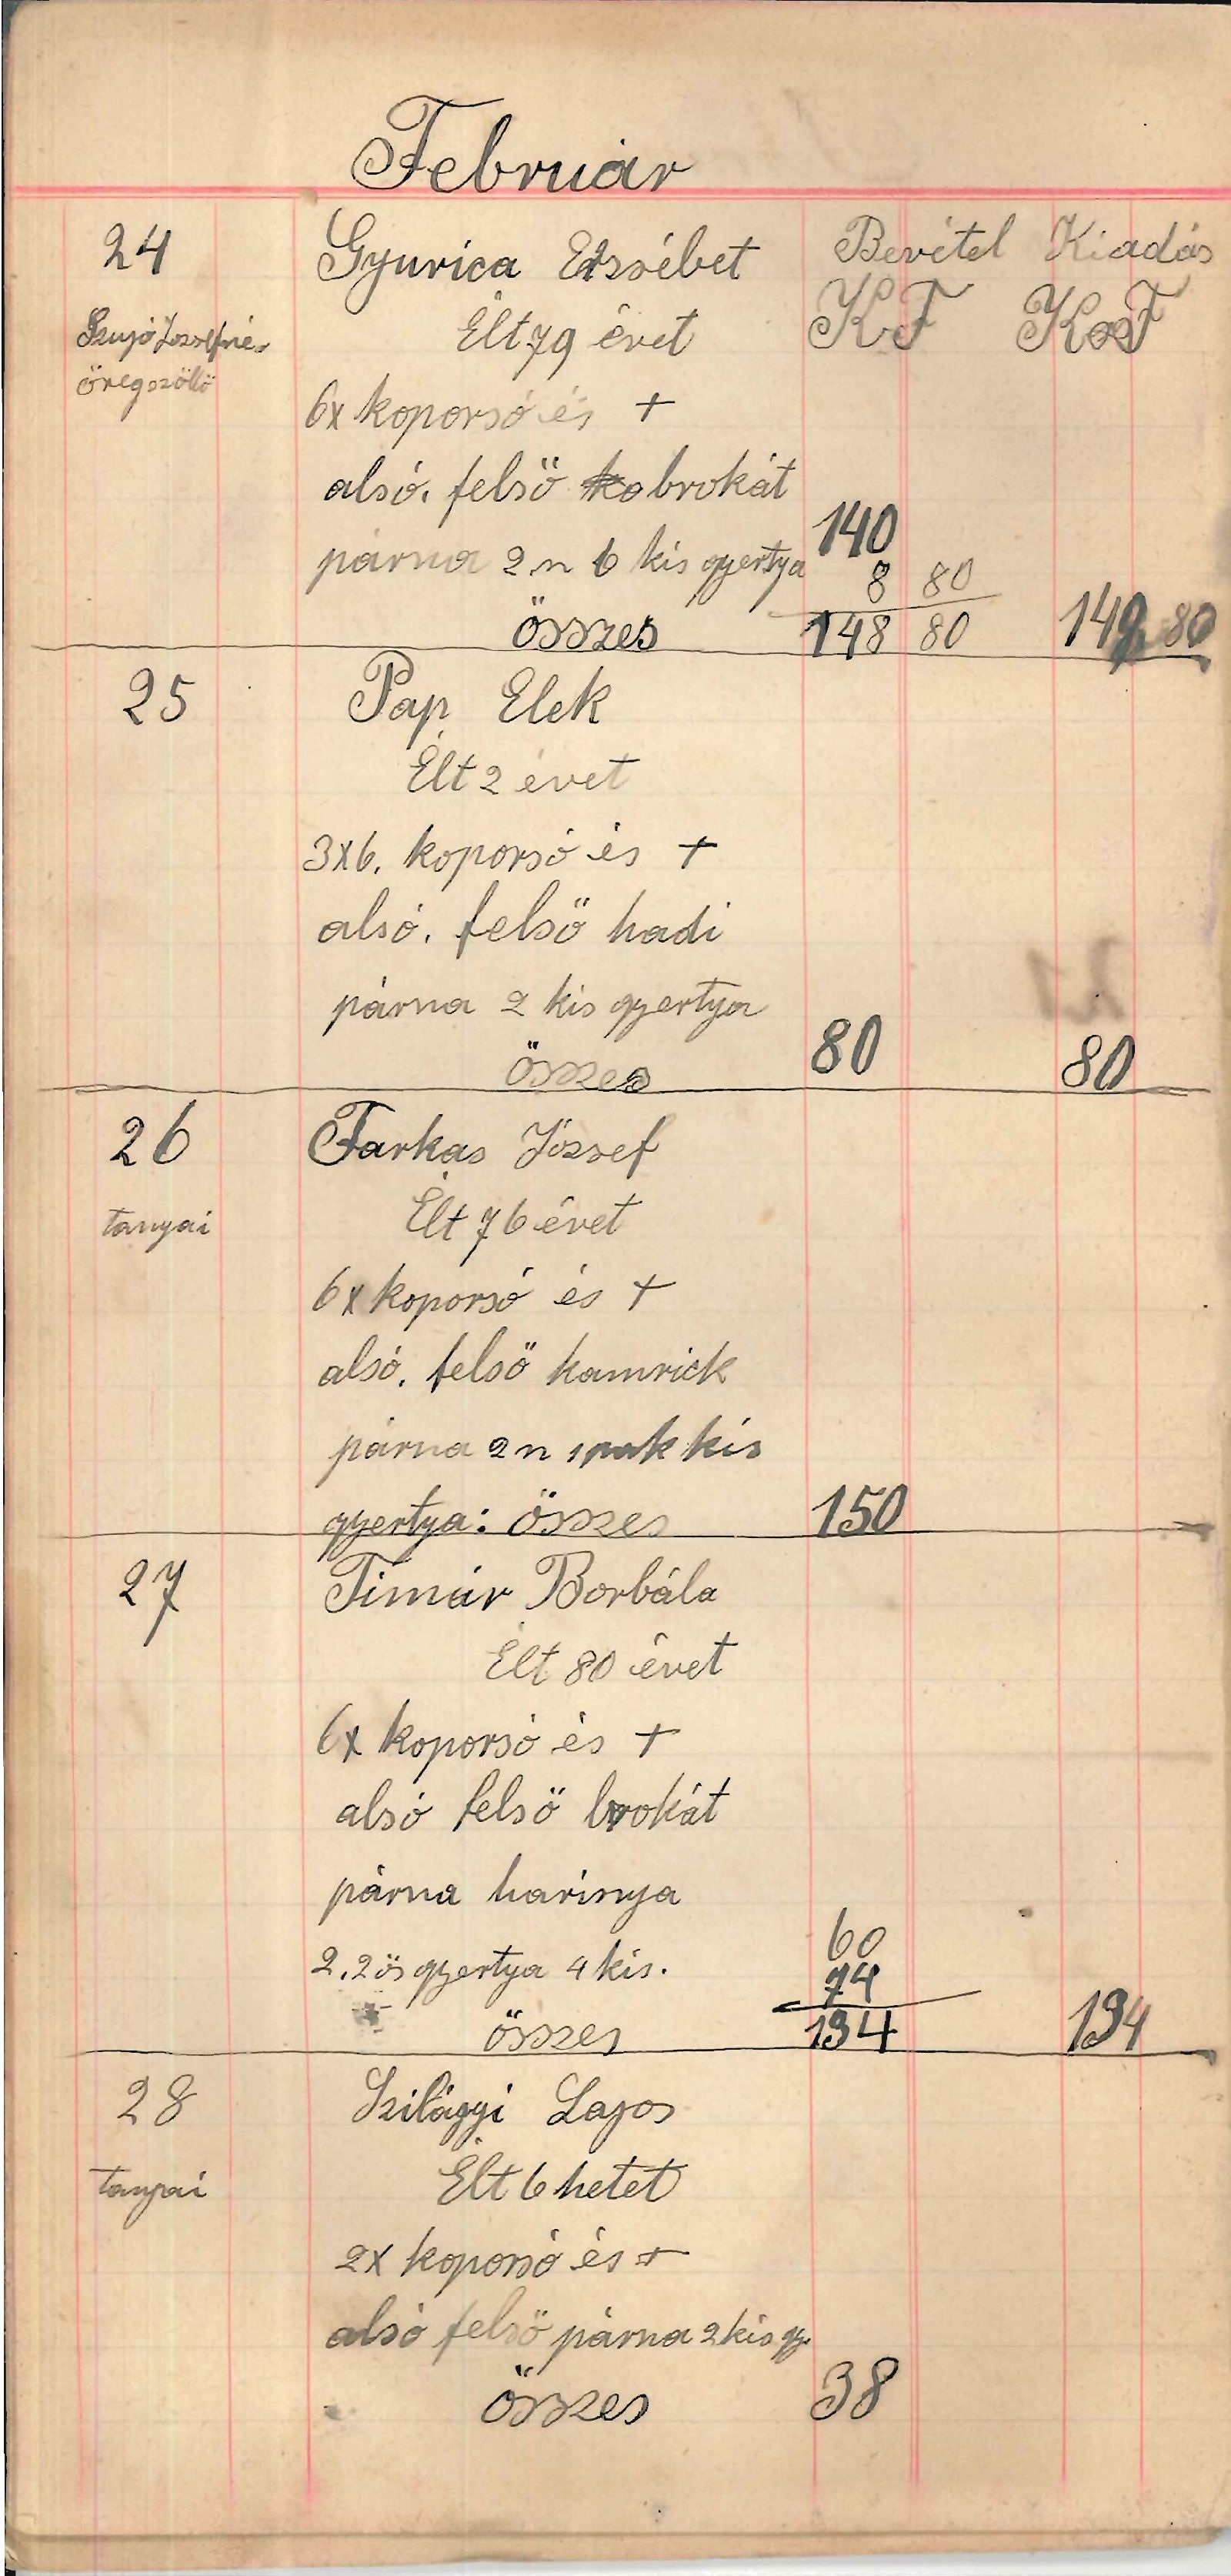 Február
24 Gyurica Erzsébet Bevétel Kiadás
Élt 79 évet K F K F
Szujó Józsefné
öregszöllő
6x koporsó és +
alsó. felső brokát
140
párna 2 n 6 kis gyertya 8 80
összes 148 80 148 80
25 Pap Elek
Élt 2 évet
3x6. koporsó és +
alsó. felső hadi
párna 2 kis gyertya
összes 80 80
26 Farkas József
tanyai Élt 76 évet
6x koporsó és +
alsó. felső kamrick
párna 2 n 1 pak kis
gyertya: összes 150
27 Timár Borbála
Élt 80 évet
6x koporsó és +
alsó felső brokát
párna harisnya
60
2.2 ös gyertya 4 kis. 74
összes 134 134
28 Szilágyi Lajos
tanyai Élt 6 hetet
2x koporsó és +
alsó felső párna 2 kis gy.
összes 38